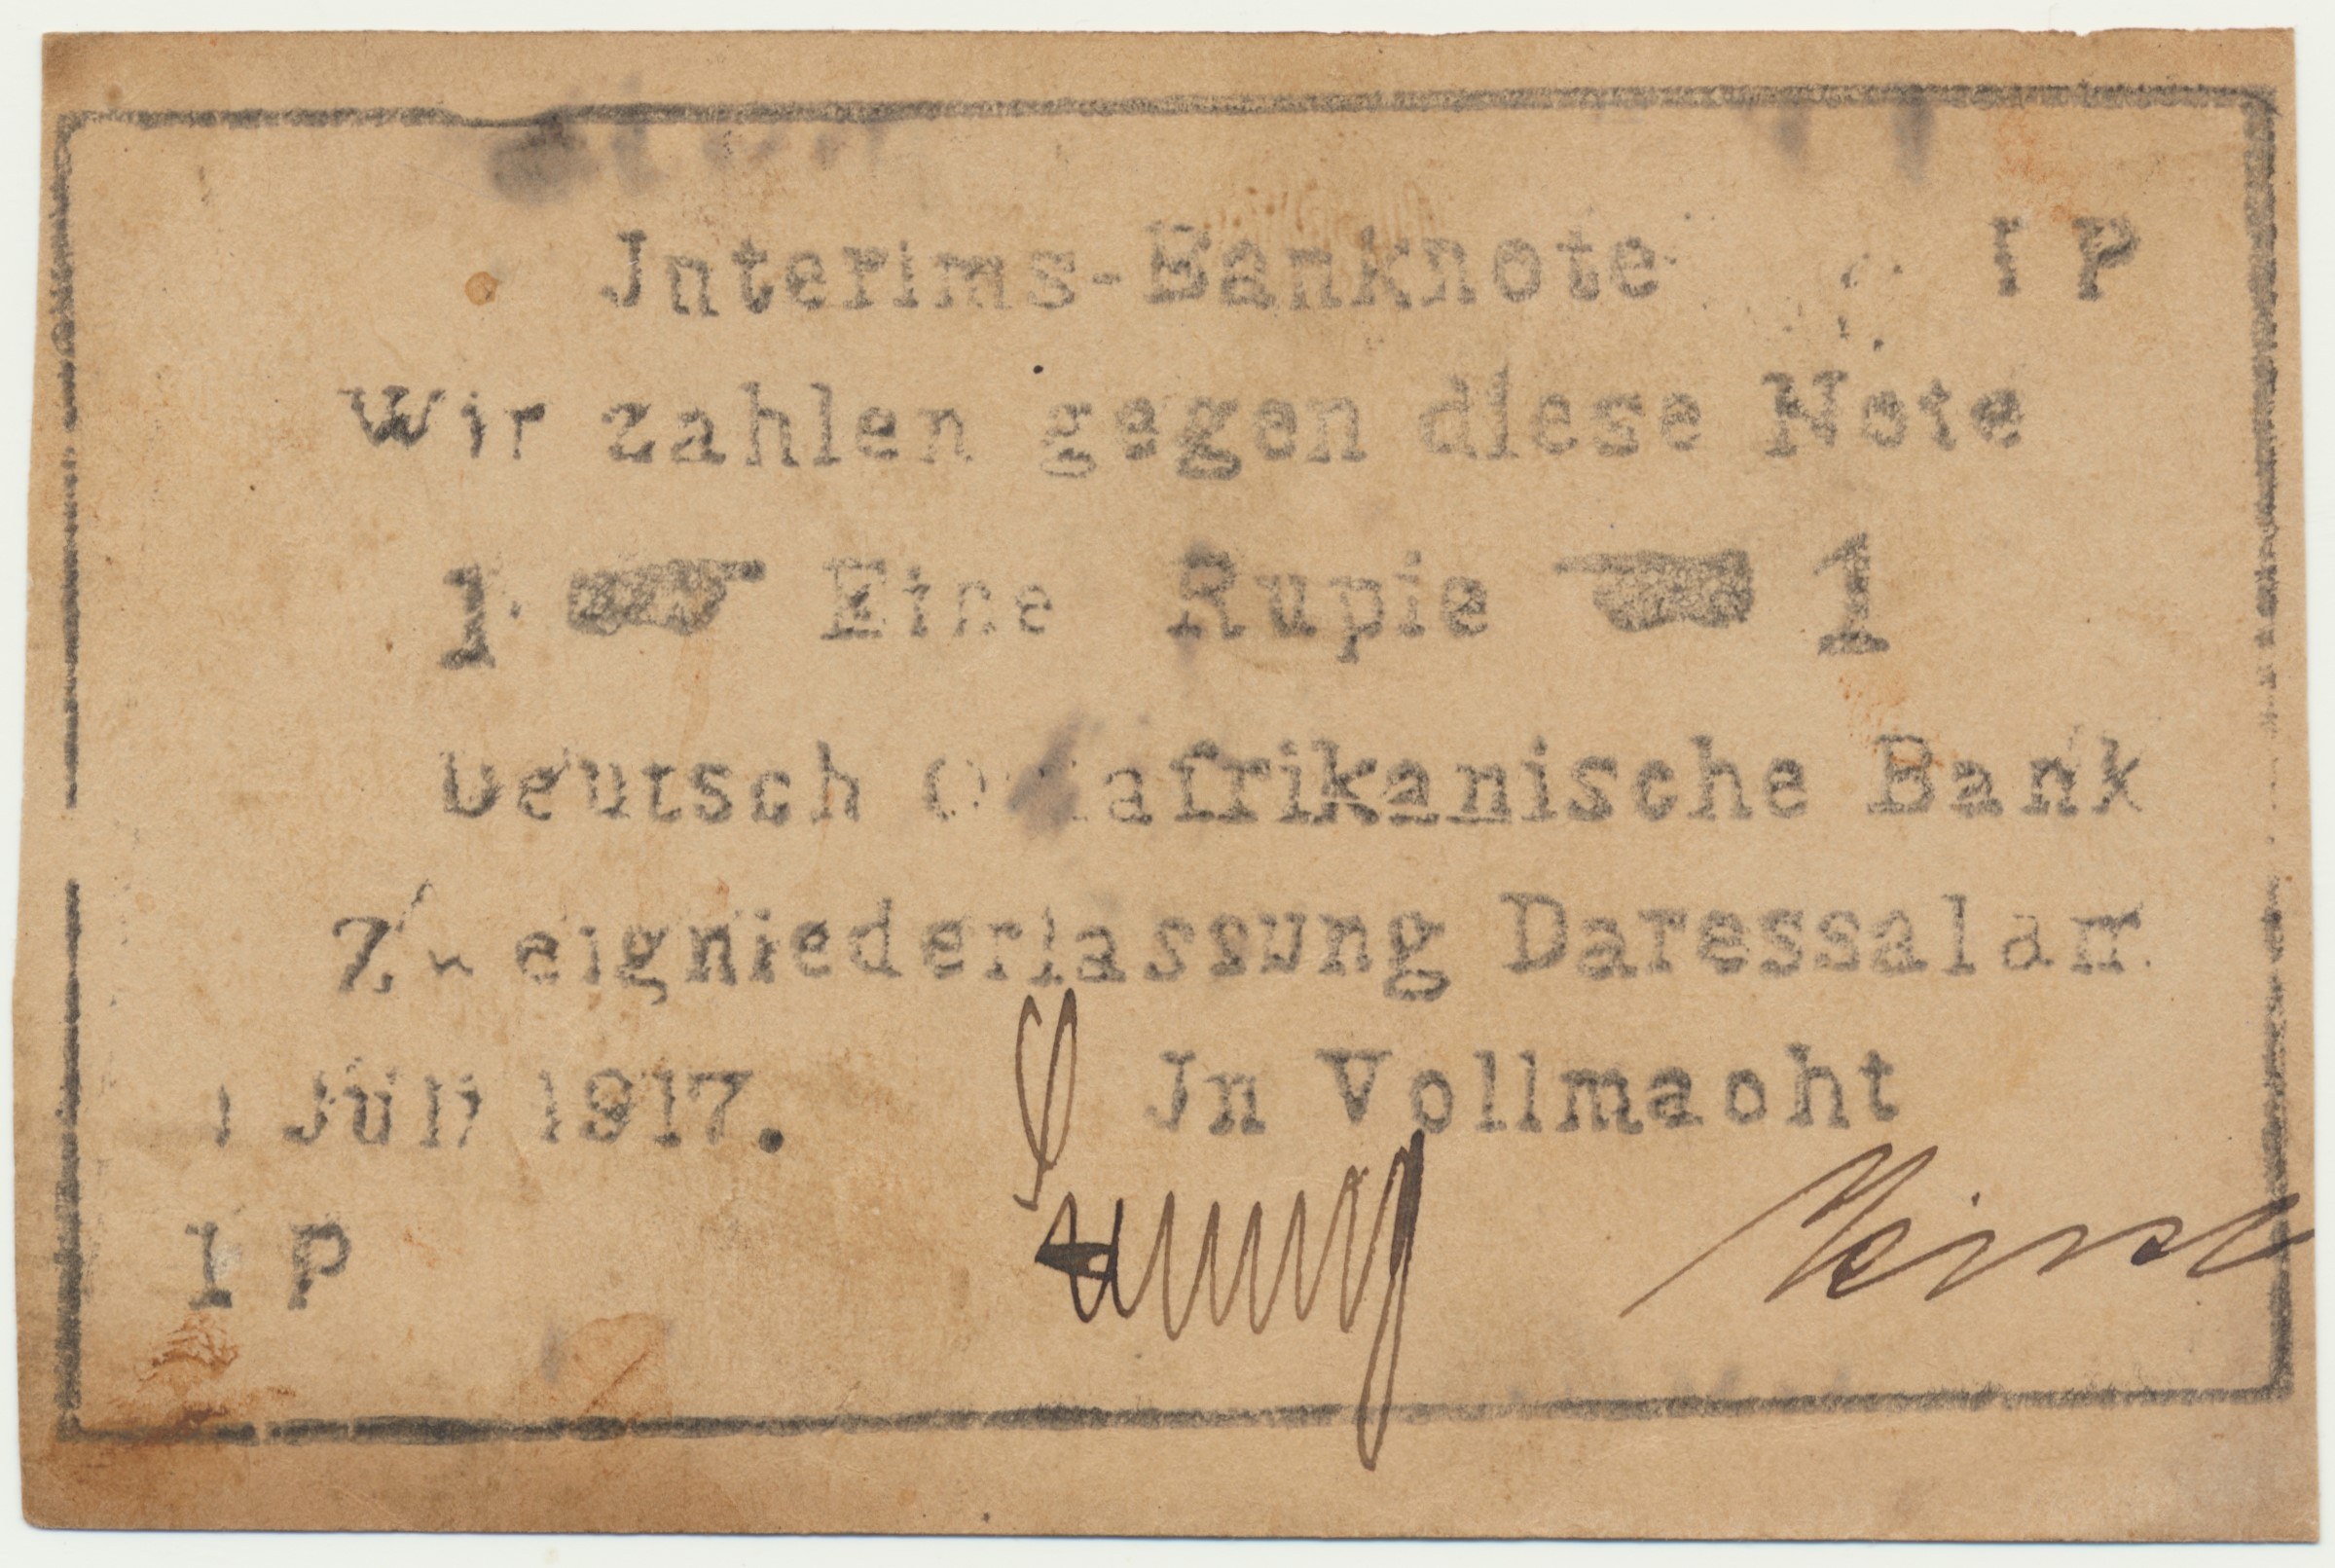 Jnterims-Banknote I P
Wir zahlen gegen diese Note
1 Eine Rupie 1
Deutsch Ostafrikanische Bank
Zweigniederlassung Daressalam
1 Juli 1917. Jn Vollmacht
1 P